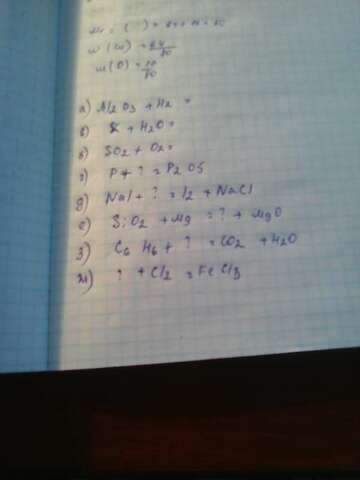 w(Cu) = 64/80
w(O) = /80
а) Al2O3 + H2 =
б) K + H2O =
в) SO2 + O2 =
г) P + ? = P2O5
д) NaI + ? = I2 + NaCl
е) SiO2 + Mg = ? + MgO
з) C6H6 + ? = CO2 + H2O
ж) ? + Cl2 = FeCl3